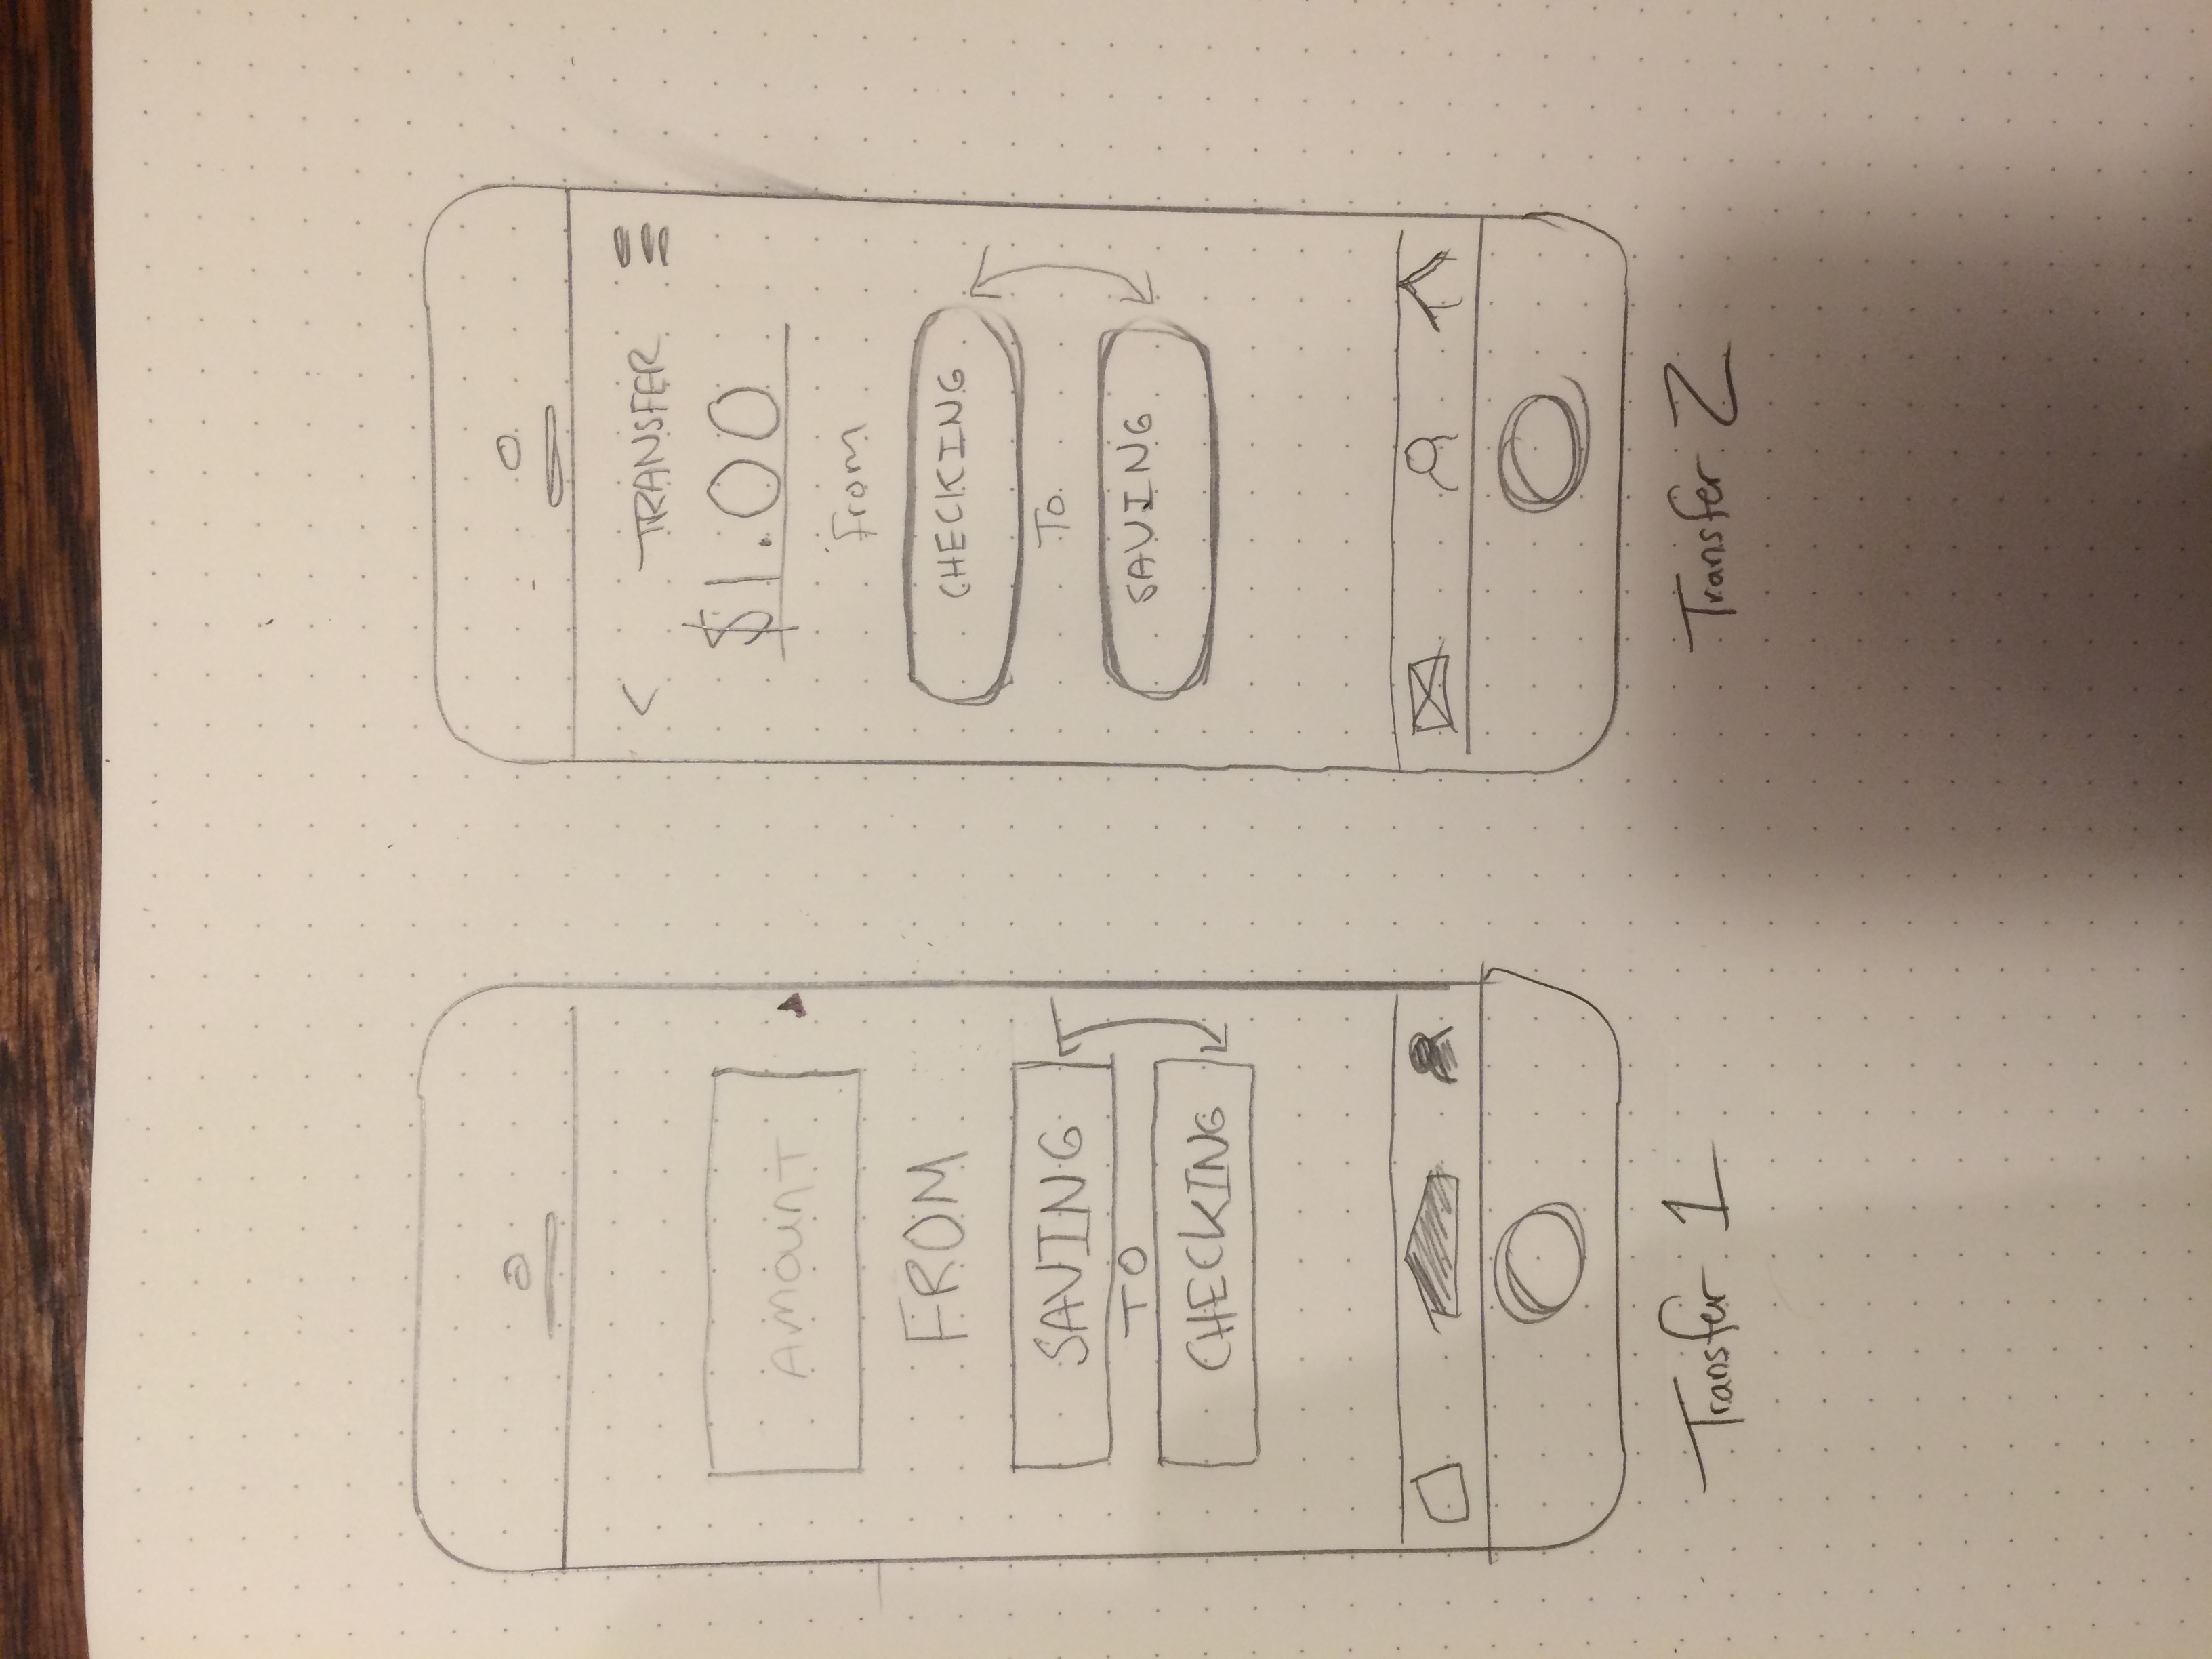 AMOUNT
FROM
SAVING
TO
CHECKING
Transfer 1
< TRANSFER
$1.00
From
CHECKING
To
SAVING
Transfer 2